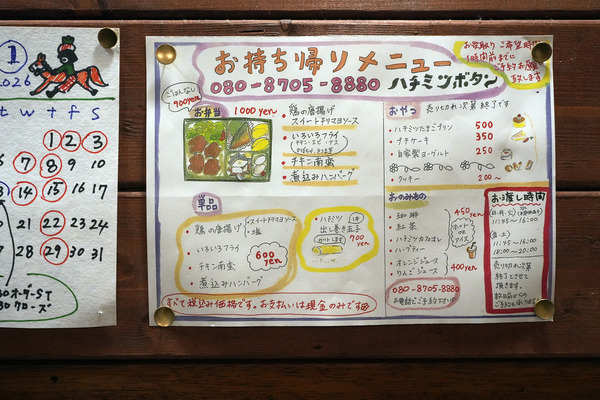 1
2026
t w t f s
1 2 3
7 8 9 10
14 15 16 17
21 22 23 24
28 29 30 31
オーダーST
クローズ
お持ち帰りメニュー
080-8705-8880 ハチミツボタン
お受取り ご希望時間
1時間前までに
ご予約お願い
致します
ごはんなし
900yen
お弁当 1000yen
・鶏の唐揚げ
スイートチリマヨソース
・いろいろフライ
チキン・エビ・ナス
かぼちゃ・さつま芋
・チキン南蛮
・煮込みハンバーグ
おやつ 売り切れ次第終了です
・ハチミツたまごプリン 500
・プチケーキ 350
・自家製ヨーグルト 250
・クッキー 200〜
単品
・鶏の唐揚げ
・スイートチリマヨソース
・塩
・いろいろフライ
・チキン南蛮
・煮込みハンバーグ
600yen
・ハチミツ 1本
出し巻き玉子
カットします
700yen
おのみもの
・珈琲
・紅茶
・ハチミツカフェオレ
・ハーブティー
・オレンジジュース
・りんごジュース
450yen
ホットorアイス
400yen
080-8705-8880
お電話でご予約下さい!!
お渡し時間
11:45〜16:00
11:45〜16:00
18:00〜20:00
売り切れ次第
終了とさせて
頂きます。
すべて税込み価格です。お支払いは現金のみです